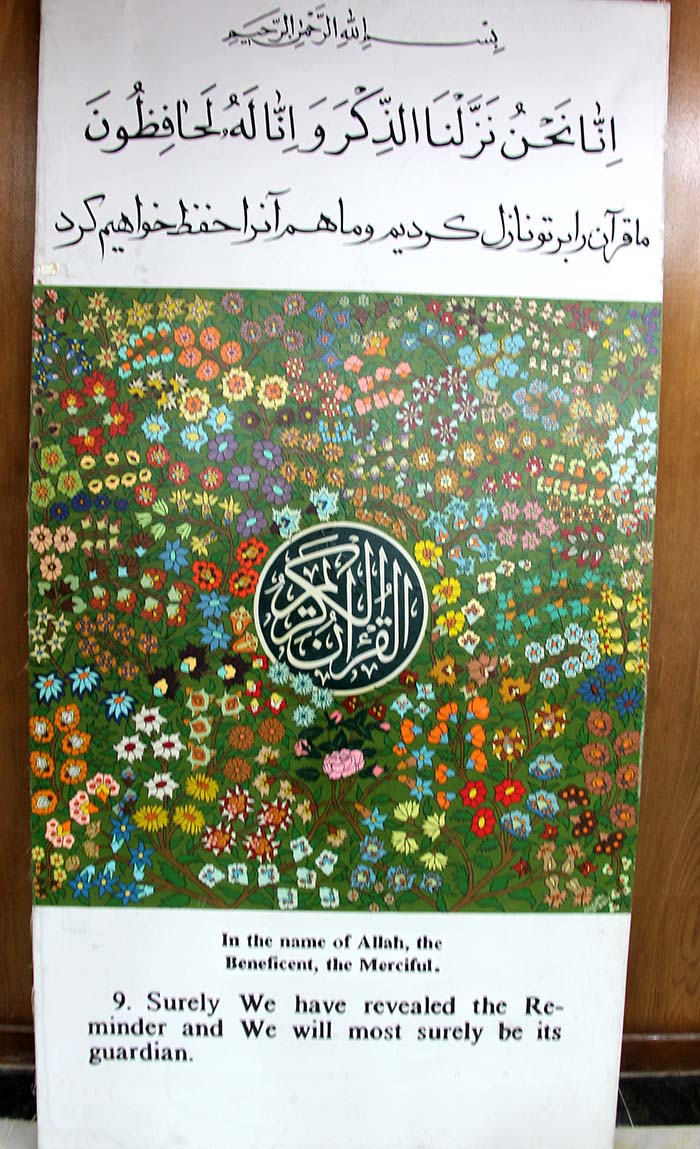 بِسْمِ اللهِ الرَّحْمٰنِ الرَّحِيمِ
اِنّٰا نَحْنُ نَزَّلْنَا الذِّكْرَ وَ اِنّٰا لَهُ لَحٰافِظُونَ
ما قرآن را بر تو نازل کردیم و ما هم آنرا حفظ خواهیم کرد
القرآن الكريم
In the name of Allah, the
Beneficent, the Merciful.
9. Surely We have revealed the Re-
minder and We will most surely be its
guardian.